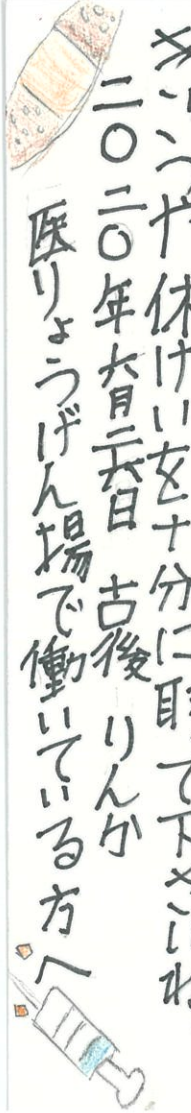 休けいを十分に取って下さいね
二〇二〇年六月二六日 古後 りんか
医りょうげん場で働いている方へ